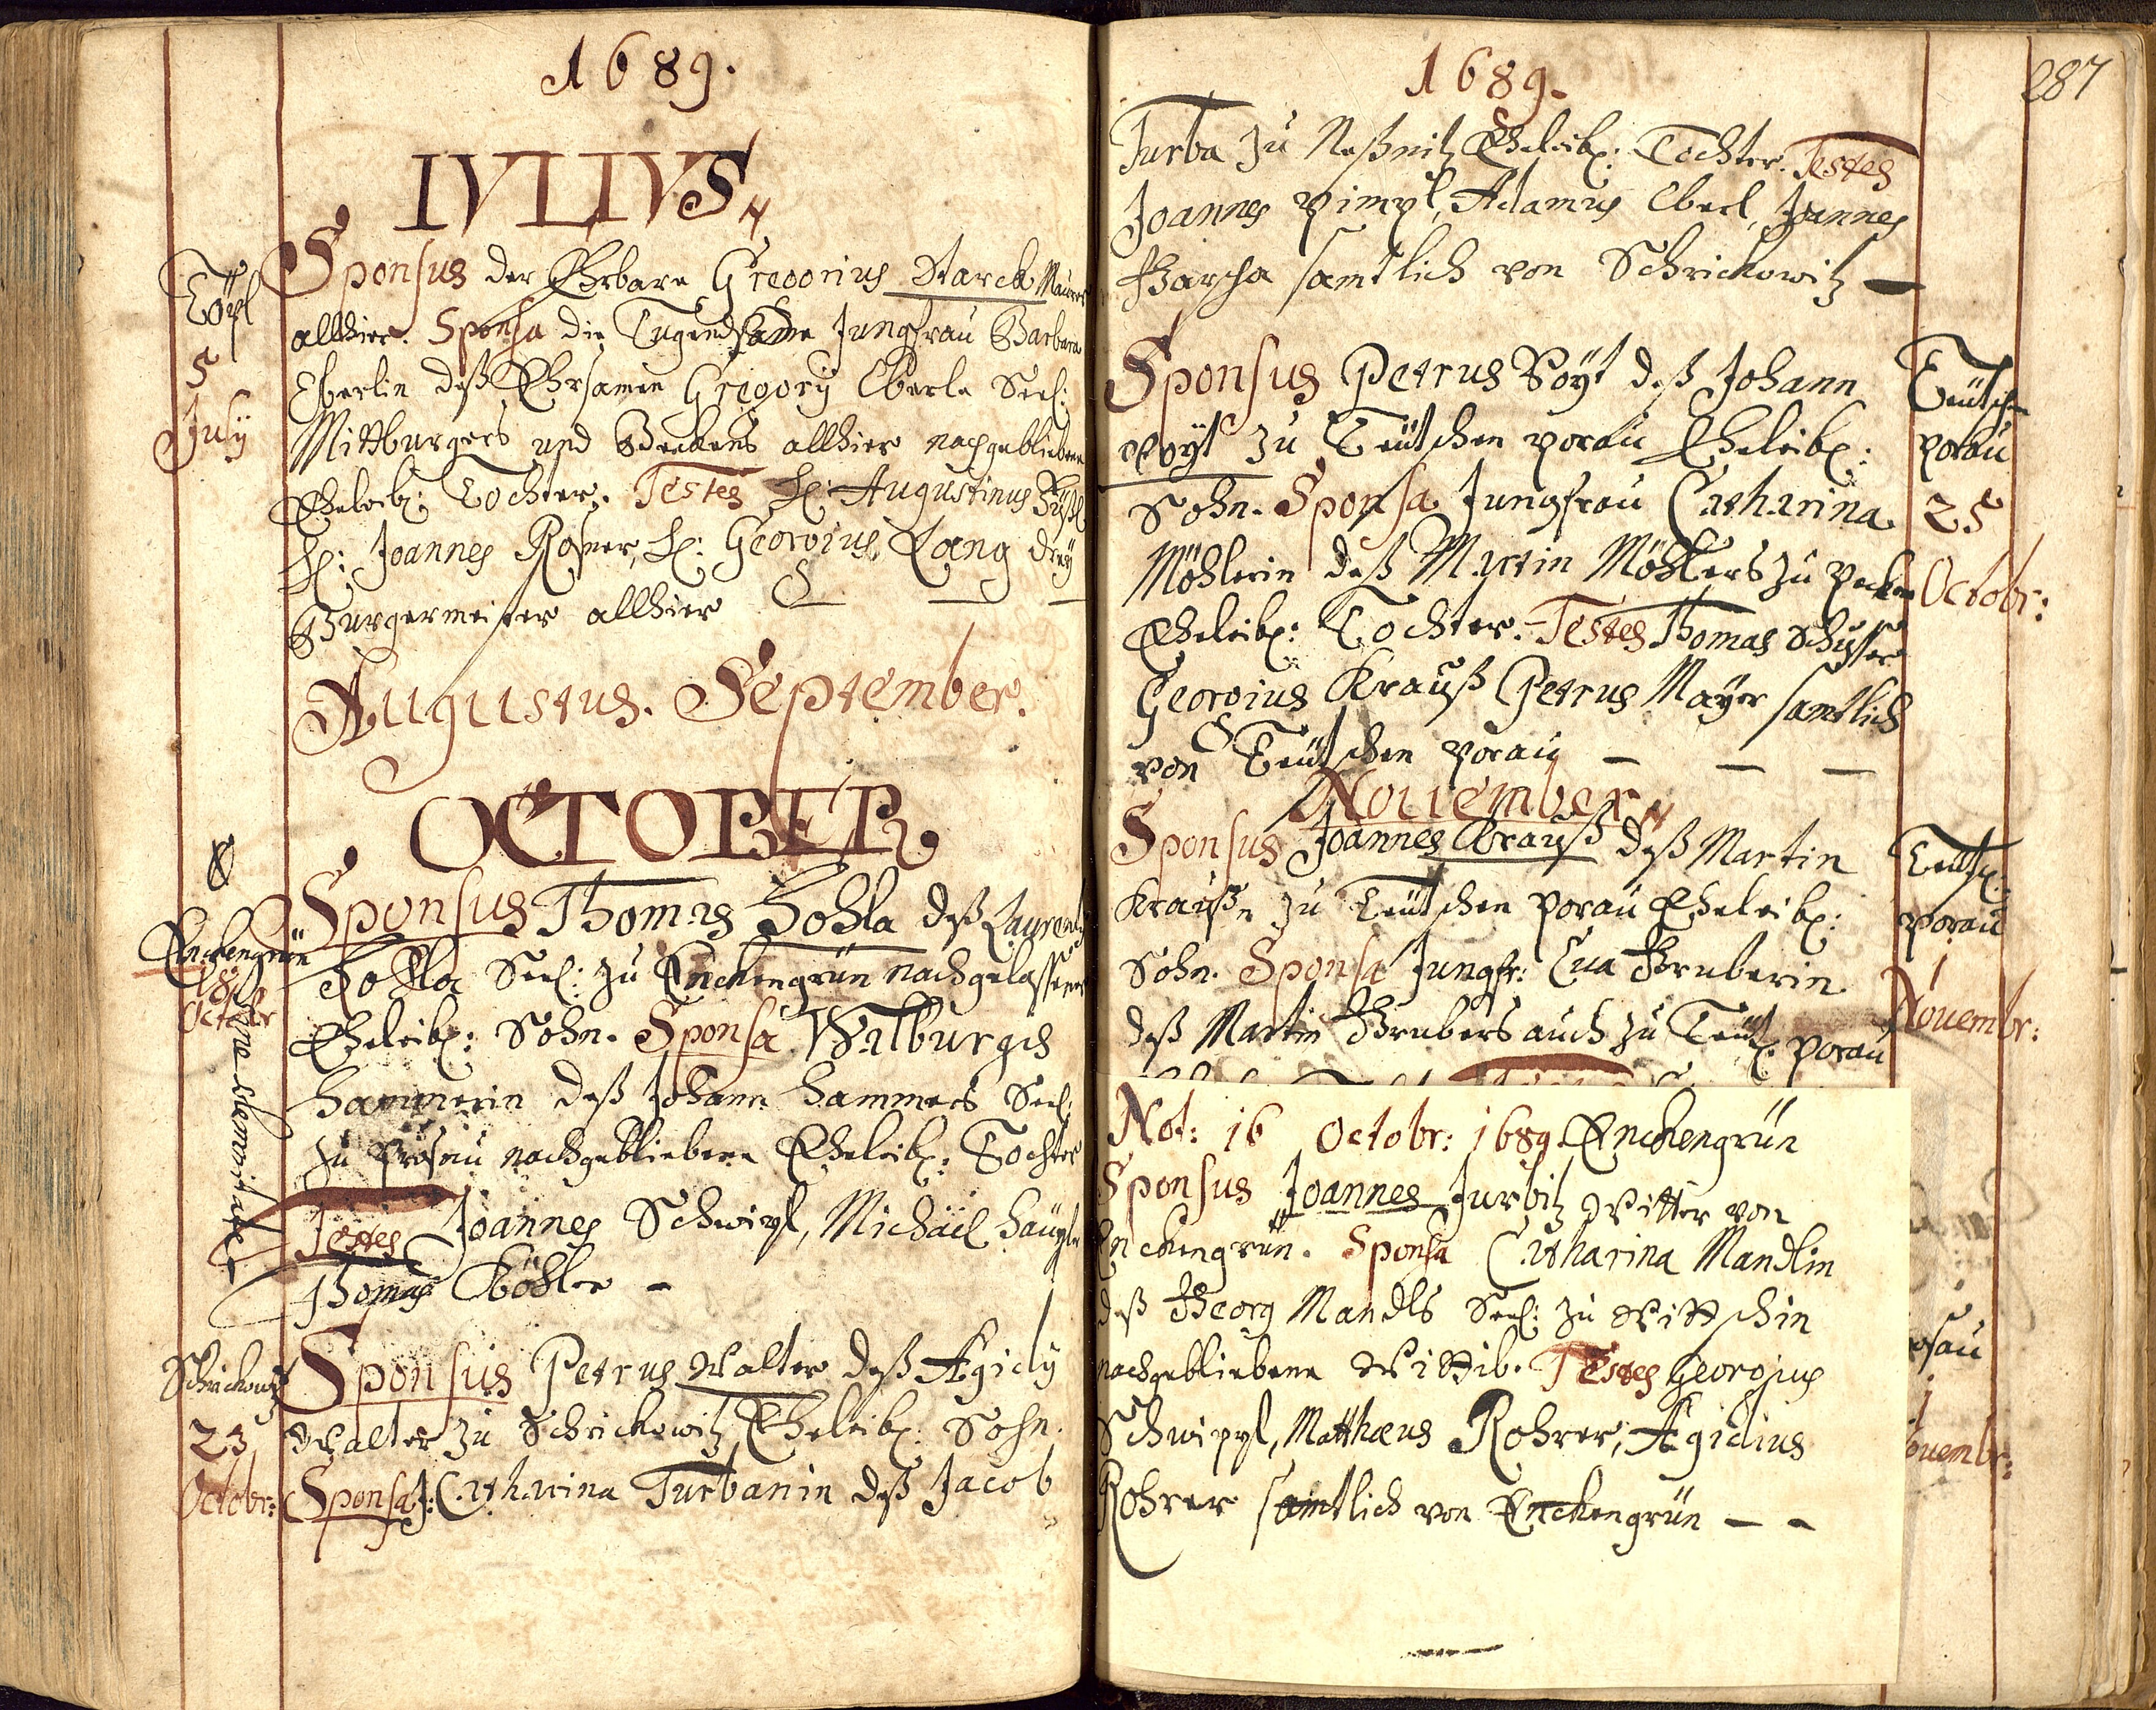 1689.
IVLIVS
Töpl
5
July
Sponsus der Ehrbare Gregorius Starck Maurer
allhier. Sponsa die Tugendsame Jungfrau Barbara
Eberlin deß Ehrsamen Gregorÿ Eberle Seel:
Mittburgers und Beckens allhier nachgebliebene
Eheleibl: Tochter. Testes H: Augustinus
H: Joannes Rosner, H: Georgius Lang
Burgermeister allhier
Augustus. September.
OCTOBER
Enckengrün
18
Octobr
Sponsus Thomas Hohla deß Laurentÿ
Hohla Seel: zu Enckengrün nachgelassener
Eheleibl: Sohn. Sponsa Walburgis
Hammerin deß Johann Hammers Seel:
zu Prosau nachgebliebene Eheleibl: Tochter
Testes Joannes Schwipl, Michäel Häupl
Thomas Köhler -
Schrickowitz
23
Octobr:
Sponsus Petrus Walter deß Ægidÿ
Walter zu Schrickowitz Eheleibl: Sohn.
Sponsa J: Catharina Turbanin deß Jacob
1689.
287
Turba zu Neßnitz Eheleibl: Tochter. Testes
Joannes Pimpl, Adamus Eberl, Joannes
samtlich von Schrickowitz —
Sponsus Petrus Voÿt deß Johann
Voÿt zu Teütschen Porau Eheleibl:
Sohn. Sponsa Jungfrau Catharina
Möhlerin deß Martin Möhlers zu
Eheleibl: Tochter. Testes Thomas Schusser
Georgius Krauß Petrus Maÿer samtlich
von Teütschen Porau — — —
Teütschen
Porau
25
Octobr:
November
Sponsus Joannes Krauß deß Martin
Kraußn zu Teütschen Porau Eheleibl:
Sohn. Sponsa Jungfr: Eua Gruberin
deß Martin Grubers auch zu Teütl: Porau
Teütsl:
Porau
1
Nouembr:
Not: 16 Octobr: 1689. Enckengrün
Sponsus Joannes Jurbitz Witter von
Enckengrün. Sponsa Catharina Mandlin
deß Georg Mandls Seel: zu Wittschin
nachgebliebene Wittib. Testes Georgius
Schwipl, Matthæus Rohrer, Ægidius
Rohrer samtlich von Enckengrün — -
osau
1
ouembr: